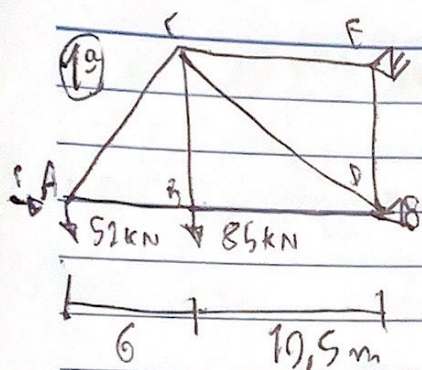 1ª
C E
A B D
52kN 85kN
6 10,5 m